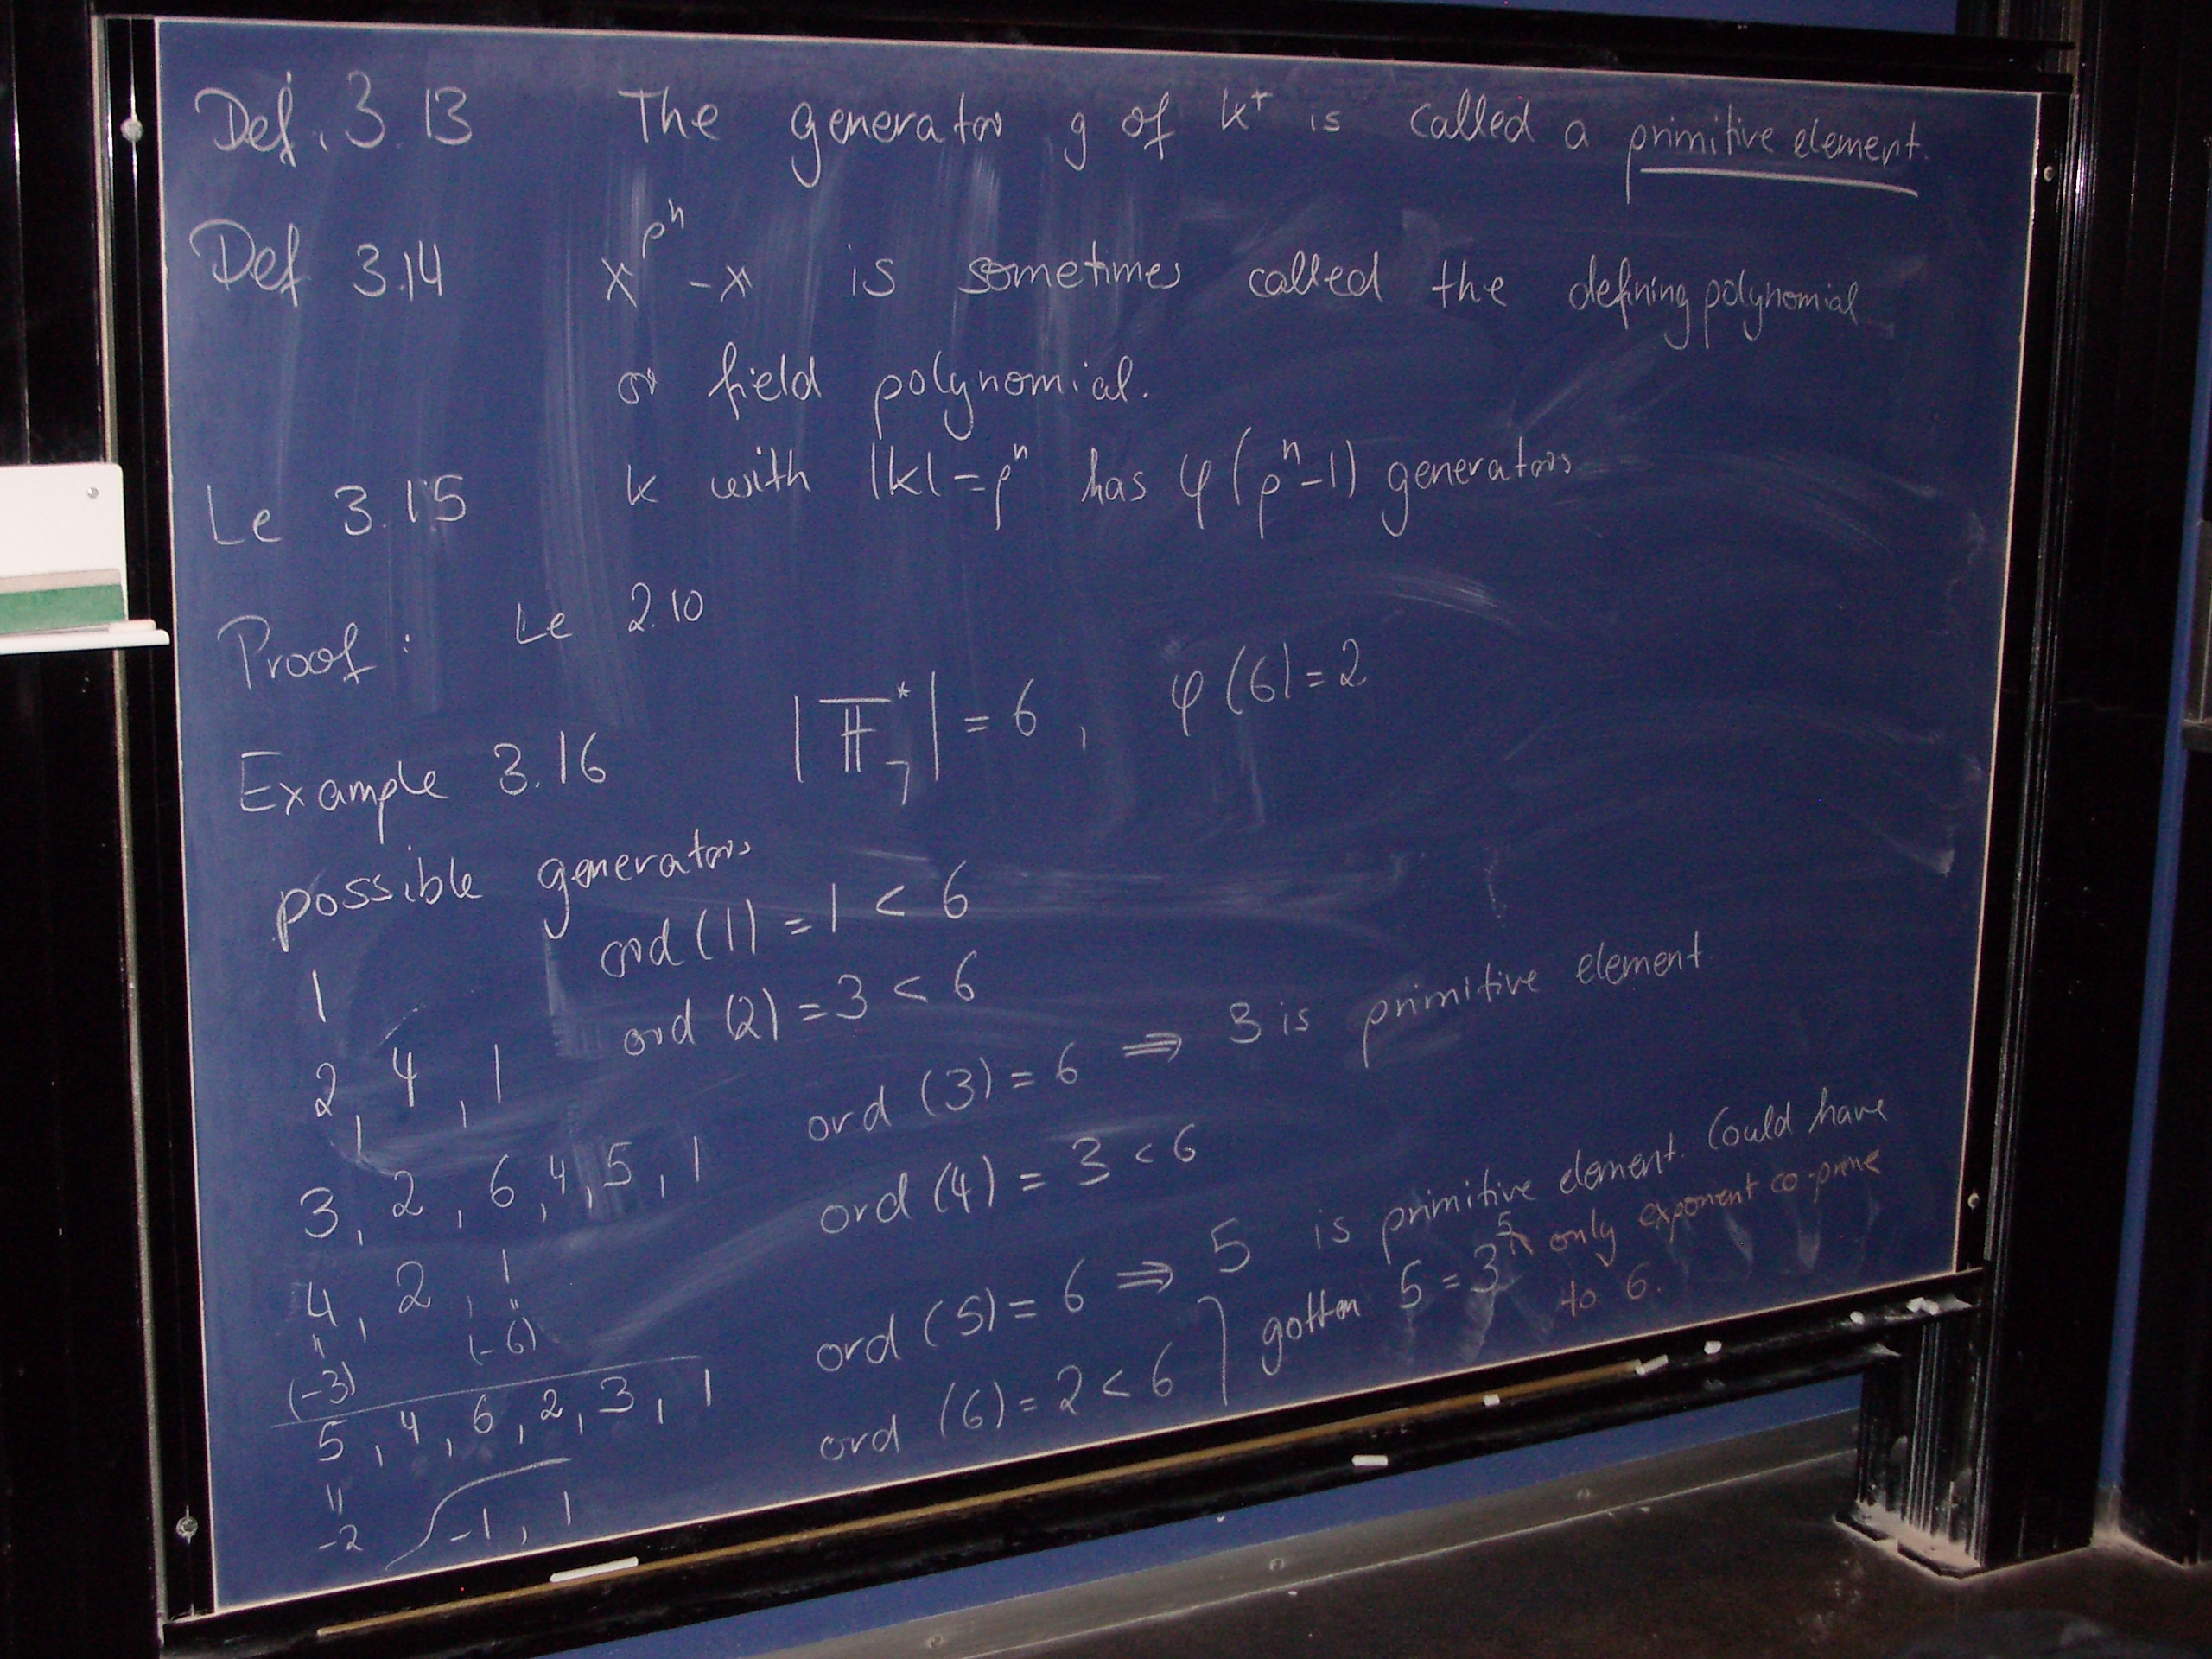 Def. 3.13 The generator g of k* is called a primitive element.
Def 3.14 x^{p^n} - x is sometimes called the defining polynomial
or field polynomial.
Le 3.15 k with |k| = p^n has φ(p^n-1) generators
Proof: Le 2.10
Example 3.16 |𝔽₇*| = 6, φ(6) = 2
possible generators
1 ord (1) = 1 < 6
2, 4, 1 ord (2) = 3 < 6
3, 2, 6, 4, 5, 1 ord (3) = 6 ⇒ 3 is primitive element
4, 2, 1 ord (4) = 3 < 6
" "
(-3) (-6)
5, 4, 6, 2, 3, 1 ord (5) = 6 ⇒ 5 is primitive element. Could have
gotten 5 = 3^5 ↖ only exponent co-prime
to 6.
"
-2 -1, 1 ord (6) = 2 < 6